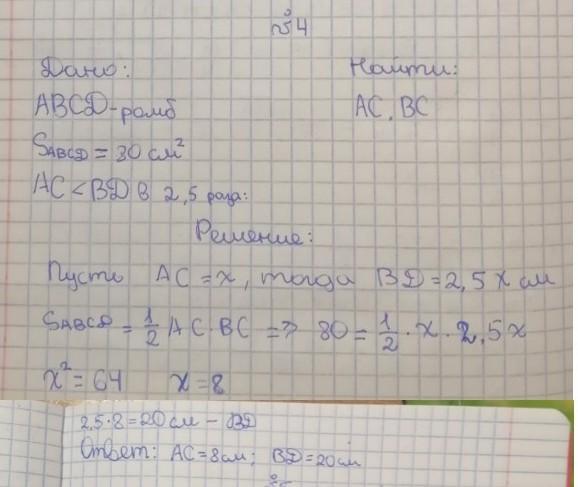 № 4
Дано:
Найти:
ABCD-ромб
AC, BC
SABCD = 80 см²
AC < BD в 2,5 раза:
Решение:
Пусть AC = x, тогда BD = 2,5 x см
SABCD = 1/2 AC · BC => 80 = 1/2 · x · 2,5x
x² = 64 x = 8
2,5·8=20 см – BD
Ответ: AC = 8см; BD = 20см